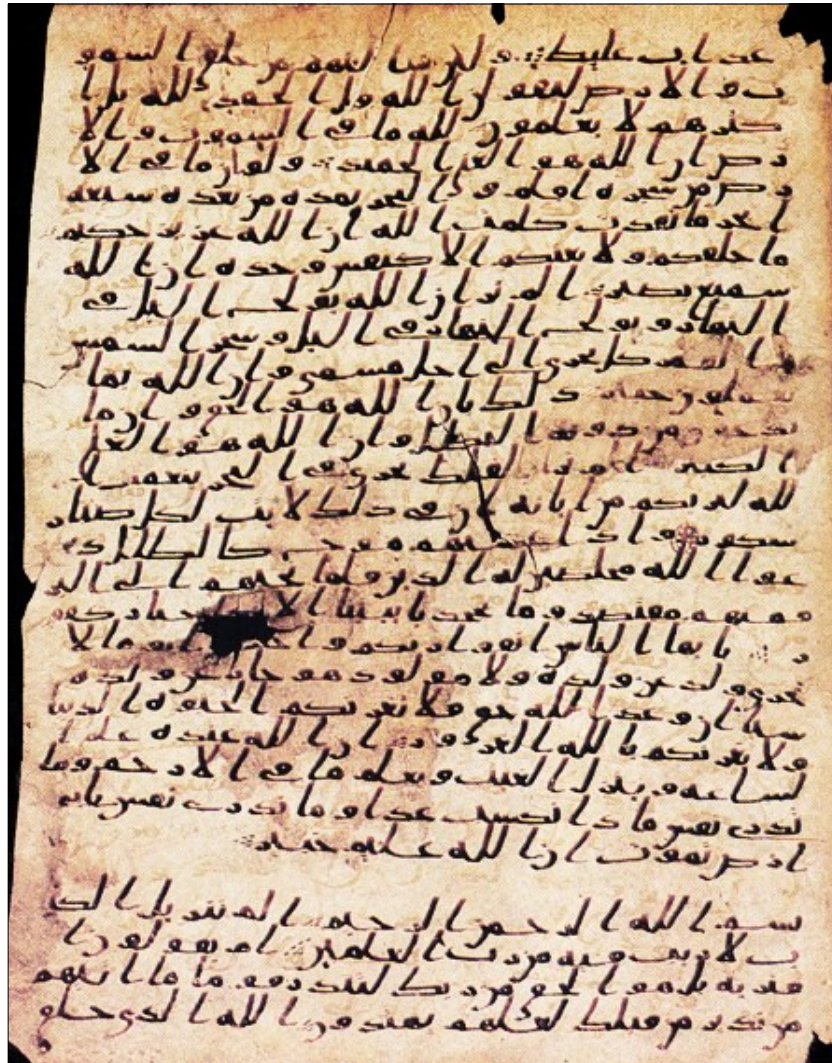 عذاب غليظ ولئن سالتهم من خلق السمو
ت والارض ليقولن الله قل الحمد لله بل ا
كثرهم لا يعلمون لله ما في السموت والا
رض ان الله هو الغني الحميد ولو ان ما في الا
رض من شجرة اقلم والبحر يمده من بعده سبعة
ابحر ما نفدت كلمت الله ان الله عزيز حكيم
ما خلقكم ولا بعثكم الا كنفس وحدة ان الله
سميع بصير الم تر ان الله يولج اليل في
النهار ويولج النهار في اليل وسخر الشمس
والقمر كل يجري الى اجل مسمى وان الله بما
تعملون خبير ذلك بان الله هو الحق وان ما
يدعون من دونه البطل وان الله هو العلي
الكبير الم تر ان الفلك تجري في البحر بنعمت ا
لله ليريكم من ايته ان في ذلك لايت لكل صبار
شكور واذا غشيهم موج كالظلل د
عوا الله مخلصين له الدين فلما نجيهم الى البر
فمنهم مقتصد وما يجحد بايتنا الا ختار كفو
ر يايها الناس اتقوا ربكم واخشوا يوما لا
يجزي ولد عن ولده ولا مولود هو جاز عن ولده
شيا ان وعد الله حق فلا تغرنكم الحيوة الدنيا
ولا يغرنكم بالله الغرور ان الله عنده علم ا
لساعة وينزل الغيث ويعلم ما في الارحم وما
تدري نفس ماذا تكسب غدا وما تدري نفس باي
ارض تموت ان الله عليم خبير
بسم الله الرحمن الرحيم الم تنزيل الكت
ب لا ريب فيه من رب العلمين ام يقولون ا
فتريه بل هو الحق من ربك لتنذر قوما ما اتيهم
من نذير من قبلك لعلهم يهتدون الله الذي خلق